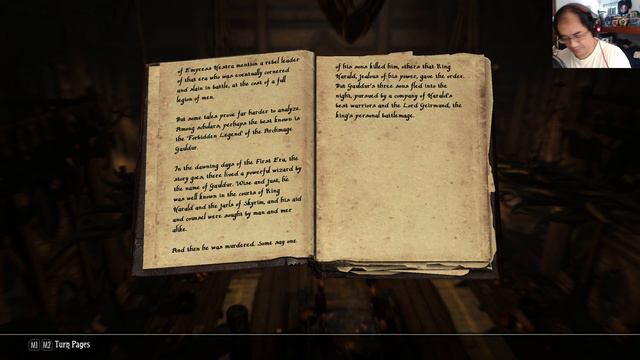 of Empress Hestra mention a rebel leader
of that era who was eventually cornered
and slain in battle, at the cost of a full
legion of men.
But some tales prove far harder to analyze.
Among scholars, perhaps the best known is
the 'Forbidden Legend' of the Archmage
Gauldur.
In the dawning days of the First Era, the
story goes, there lived a powerful wizard by
the name of Gauldur. Wise and just, he
was well known in the courts of King
Harald and the jarls of Skyrim, and his aid
and counsel were sought by man and mer
alike.
And then he was murdered. Some say one
of his sons killed him, others that King
Harald, jealous of his power, gave the order.
But Gauldur's three sons fled into the
night, pursued by a company of Harald's
best warriors and the Lord Geirmund, the
king's personal battlemage.
M1 M2 Turn Pages